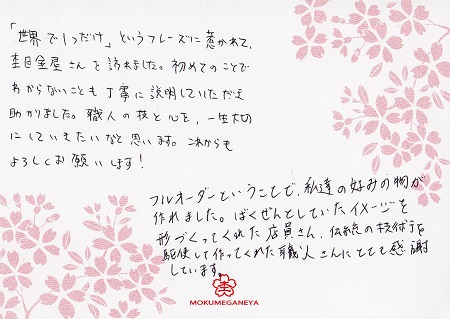 「世界で1つだけ」というフレーズに惹かれて、
杢目金屋さんを訪れました。初めてのことで
わからないことも丁寧に説明していただき
助かりました。職人の技と心を、一生大切
にしていきたいなと思います。これからも
よろしくお願いします!
フルオーダーということで、私達の好みの物が
作れました。ばくぜんとしていたイメージを
形づくってくれた店員さん、伝統の技術を
駆使して作ってくれた職人さんにとても感謝
しています。
杢
MOKUMEGANEYA